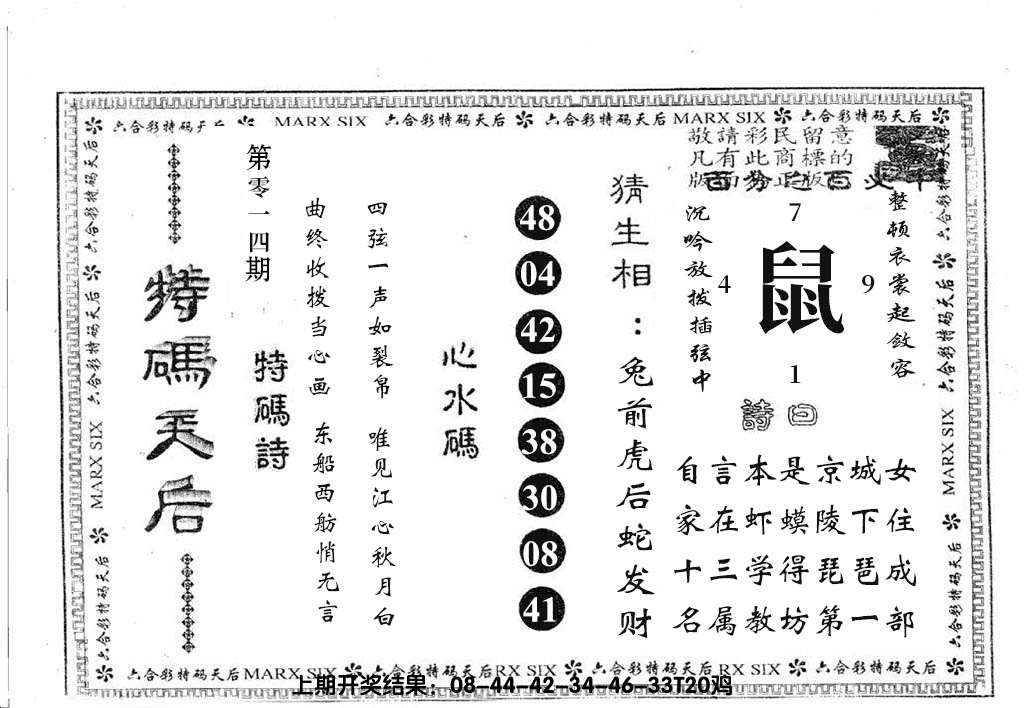 六合彩特码 MARX SIX 六合彩特码天后 六合彩特码天后 MARX SIX 六合彩特码天后
敬請彩民留意
凡有此商標的
六合彩特码天后 MARX SIX 六合彩特码天后 六合彩特码天后
特碼天后
第零一四期
特碼詩
曲终收拨当心画 东船西舫悄无言
四弦一声如裂帛 唯见江心秋月白
心水碼
48
04
42
15
38
30
08
41
猜生相：兔前虎后蛇发财
沉吟放拔插弦中
7
4 鼠 9
1
整顿衣裳起敛容
詩曰
自言本是京城女
家在虾蟆陵下住
十三学得琵琶成
名属教坊第一部
六合彩特码天后 六合彩特码天后 MARX SIX 六合彩特码天后
六合彩特码天后 MARX SIX 六合彩特码天后 RX SIX 六合彩特码天后 RX SIX 六合彩特码天后
上期开奖结果：08-44-42-34-46-33T20鸡